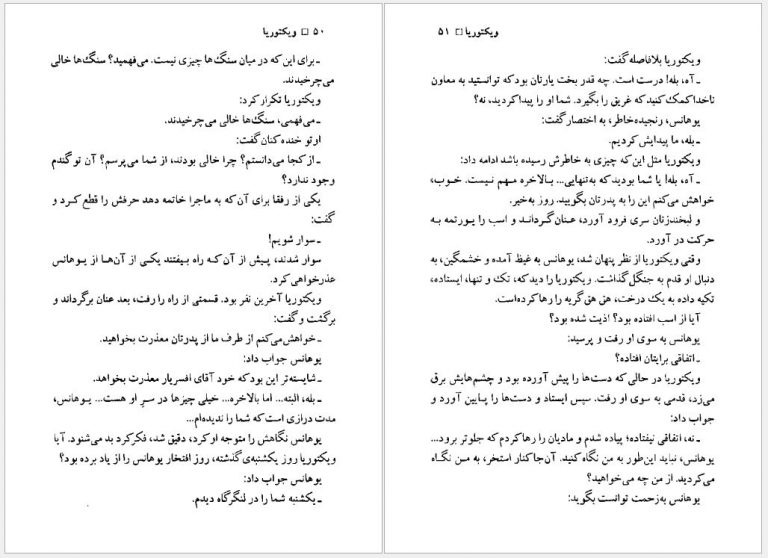 ۵۰ □ ویکتوریا
ـ برای این که در میان سنگ‌ها چیزی نیست. می‌فهمید؟ سنگ‌ها خالی
می‌چرخیدند.
ویکتوریا تکرار کرد:
ـ می‌فهمی، سنگ‌ها خالی می‌چرخیدند.
اوتو خنده‌کنان گفت:
ـ از کجا می‌دانستم؟ چرا خالی بودند، از شما می‌پرسم؟ آن تو گندم
وجود ندارد؟
یکی از رفقا برای آن که به ماجرا خاتمه دهد حرفش را قطع کرد و
گفت:
ـ سوار شویم!
سوار شدند، پیش از آن‌که راه بیفتند یکی از آن‌ها از یوهانس
عذرخواهی کرد.
ویکتوریا آخرین نفر بود. قسمتی از راه را رفت، بعد عنان برگرداند و
برگشت و گفت:
ـ خواهش می‌کنم از طرف ما از پدرتان معذرت بخواهید.
یوهانس جواب داد:
ـ شایسته‌تر این بود که خود آقای افسریار معذرت بخواهد.
ـ بله، البته... اما بالاخره... خیلی چیزها در سر او هست... یوهانس،
مدت درازی است که شما را ندیده‌ام...
یوهانس نگاهش را متوجه او کرد، دقیق شد، فکر کرد بد می‌شنود. آیا
ویکتوریا روز یکشنبه‌ی گذشته، روز افتخار یوهانس را از یاد برده بود؟
یوهانس جواب داد:
ـ یکشنبه شما را در لنگرگاه دیدم.
ویکتوریا □ ۵۱
ویکتوریا بلافاصله گفت:
ـ آه، بله! درست است. چه قدر بخت یارتان بود که توانستید به معاون
ناخدا کمک کنید که غریق را بگیرد. شما او را پیدا کردید، نه؟
یوهانس، رنجیده‌خاطر، به اختصار گفت:
ـ بله، ما پیدایش کردیم.
ویکتوریا مثل این که چیزی به خاطرش رسیده باشد ادامه داد:
ـ آه، بله! یا شما بودید که به‌تنهایی... بالاخره مهم نیست. خوب،
خواهش می‌کنم این را به پدرتان بگویید. روز به‌خیر.
و لبخندزنان سری فرود آورد، عنان گرداند و اسب را یورتمه به
حرکت در آورد.
وقتی ویکتوریا از نظر پنهان شد، یوهانس به غیظ آمده و خشمگین، به
دنبال او قدم به جنگل گذاشت. ویکتوریا را دید که، تک و تنها، ایستاده،
تکیه داده به یک درخت، هق هق گریه را رها کرده است.
آیا از اسب افتاده بود؟ اذیت شده بود؟
یوهانس به سوی او رفت و پرسید:
ـ اتفاقی برایتان افتاده؟
ویکتوریا در حالی که دست‌ها را پیش آورده بود و چشم‌هایش برق
می‌زد، قدمی به سوی او رفت. سپس ایستاد و دست‌ها را پایین آورد و
جواب داد:
ـ نه، اتفاقی نیفتاده؛ پیاده شدم و مادیان را رها کردم که جلوتر برود...
یوهانس، نباید این‌طور به من نگاه کنید. آن‌جا کنار استخر، به من نگاه
می‌کردید. از من چه می‌خواهید؟
یوهانس به‌زحمت توانست بگوید: